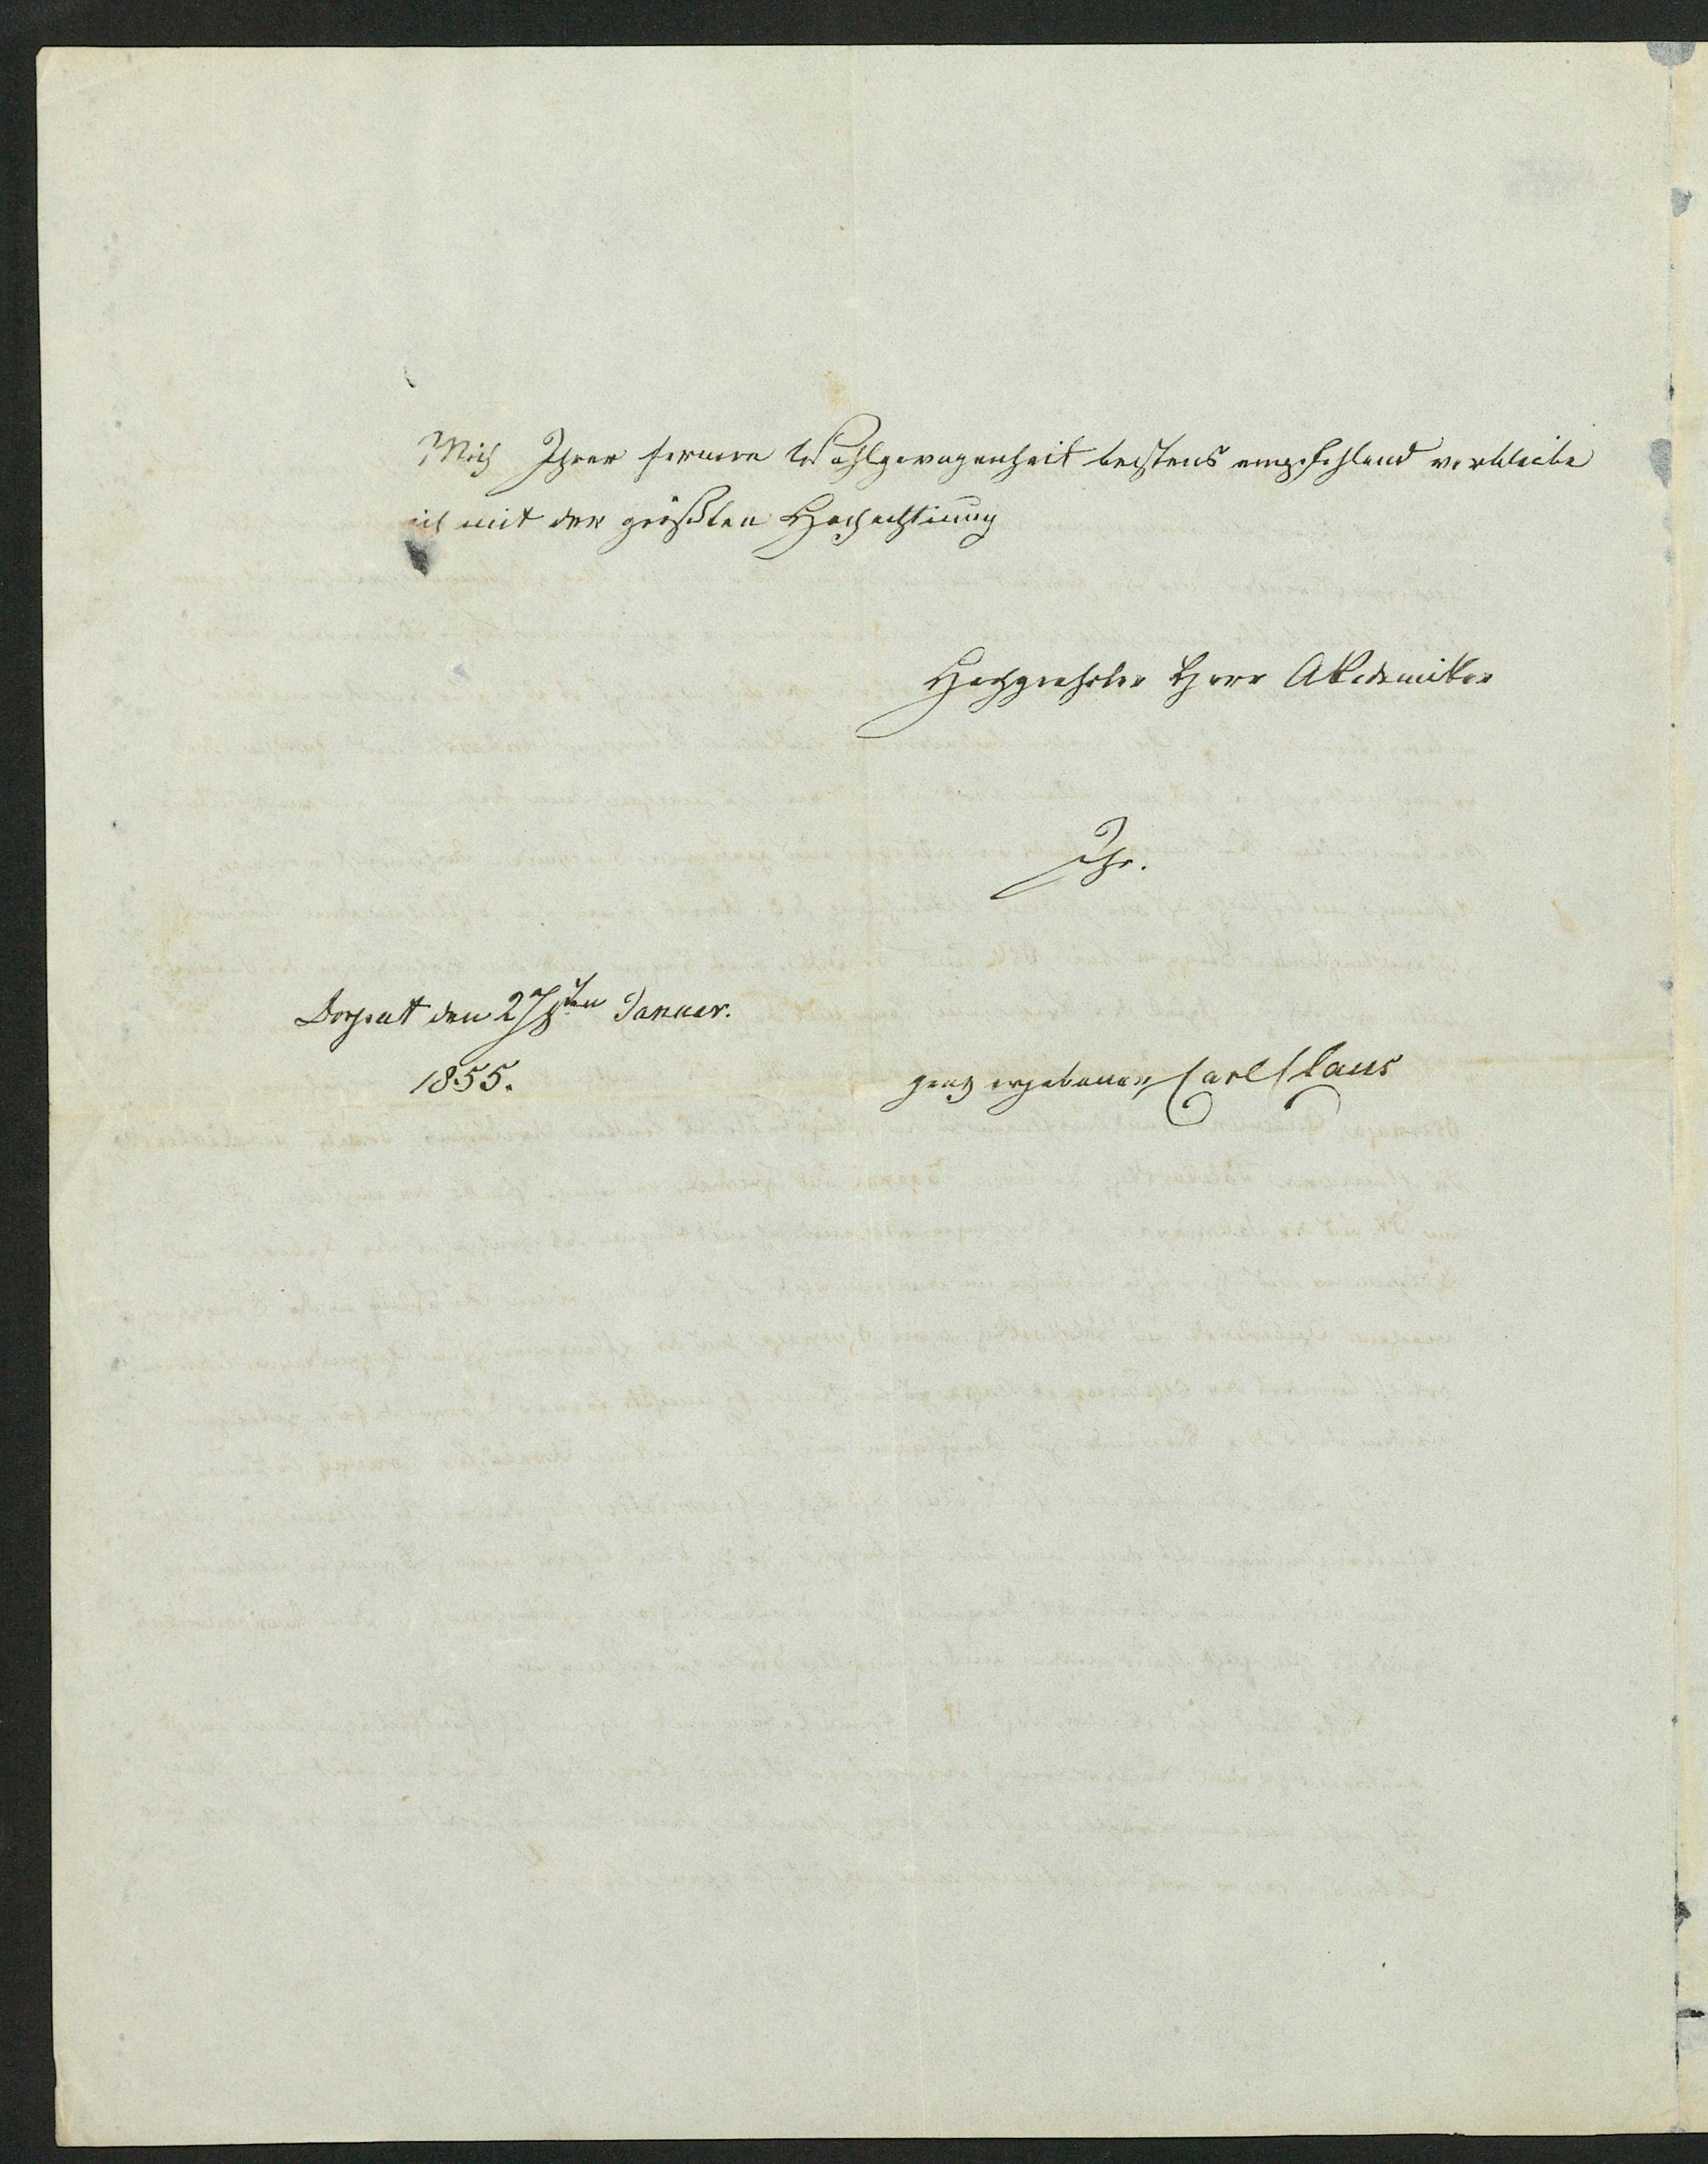 Mich Ihrer fernern Wohlgewogenheit bestens empfehlend verbleibe
ich mit der größten Hochachtung
Hochgeehrter Herr Akademiker
Ihr.
Dorpat den 27sten Januar.
1855.
ganz ergebener Carl Claus